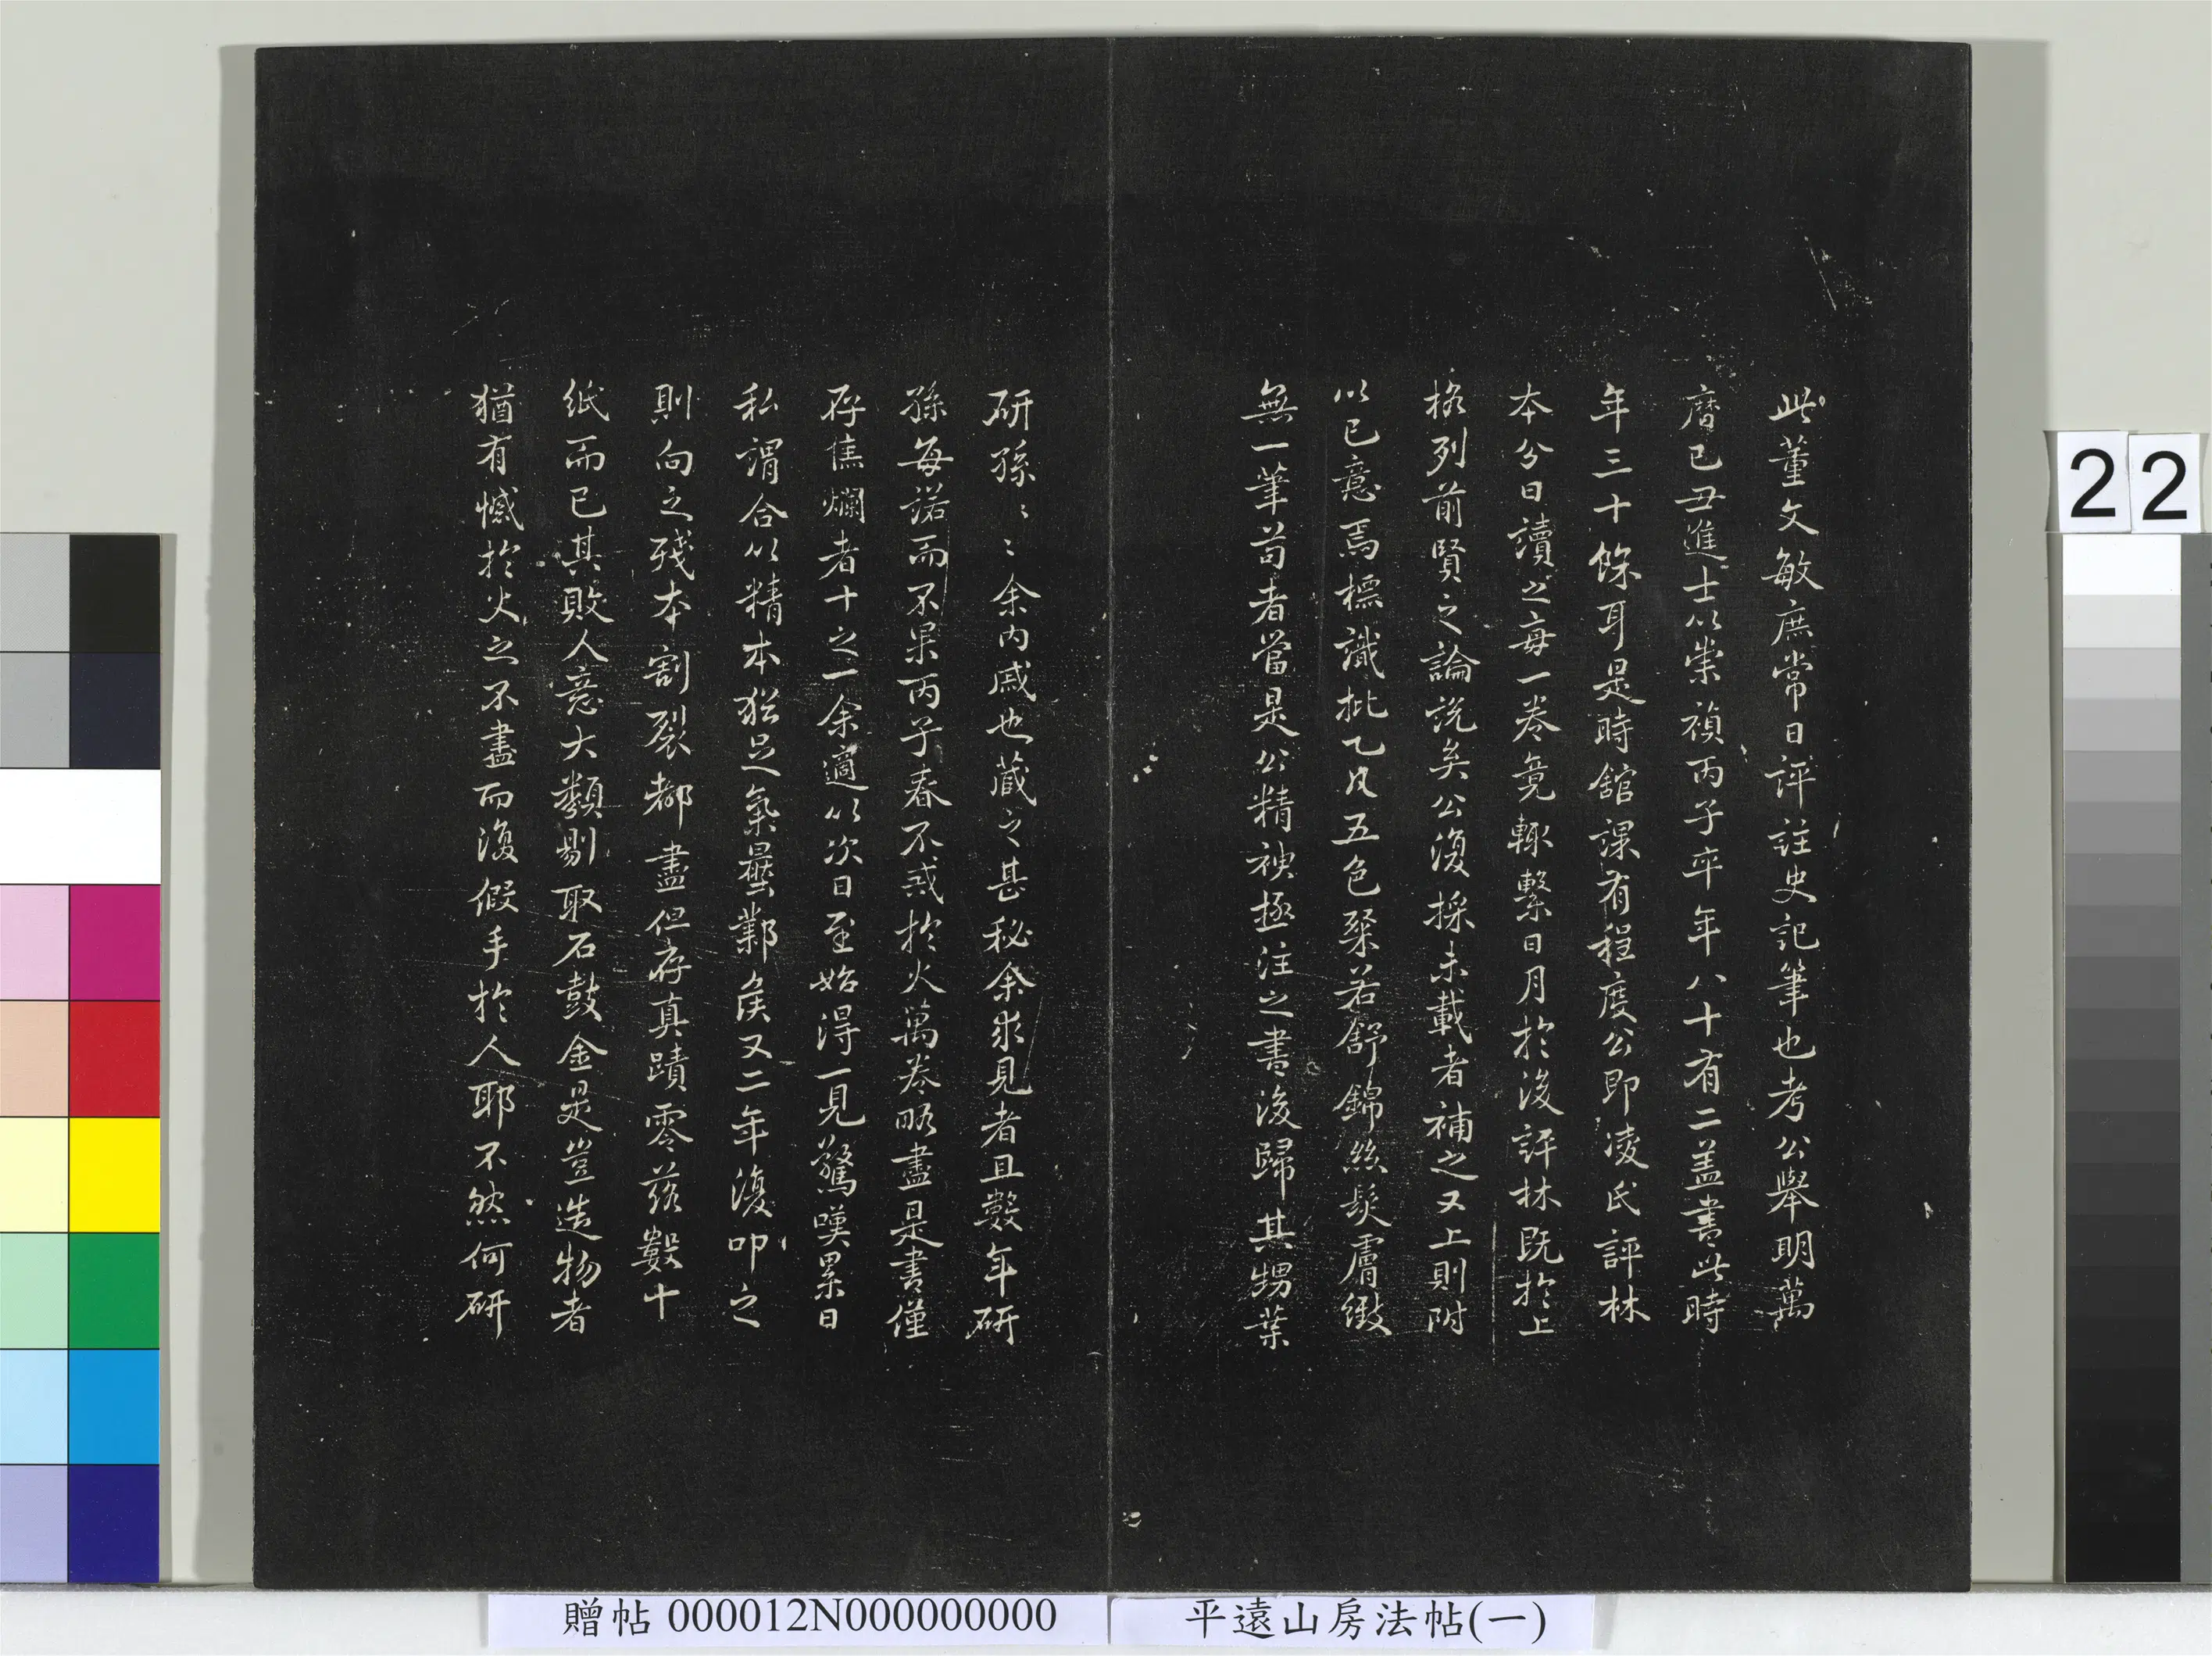 此董文敏庶常日評註史記筆也考公舉明萬
曆己丑進士以崇禎丙子卒年八十有二蓋書此時
年三十餘耳是時館課有程度公即凌氏評林
本分日讀之每一卷竟輒繫日月於後評林既於上
格列前賢之論說矣公復採未載者補之又上則附
以己意焉標識批乙凡五色粲若舒錦絲髮膚緻
無一筆苟者當是公精神極注之書後歸其甥葉
研孫〻〻余內戚也藏之甚秘余求見者且數年研
孫每諾而不果丙子春不戒於火萬卷略盡是書僅
存焦爛者十之一余適以次日至始得一見驚嘆累日
私謂合以精本猶足氣曇鄴侯又二年復叩之
則向之殘本割裂都盡但存真蹟零落數十
紙而已其敗人意大類剔取石鼓金是豈造物者
猶有憾於火之不盡而復假手於人耶不然何研
22
贈帖 000012N000000000
平遠山房法帖(一)